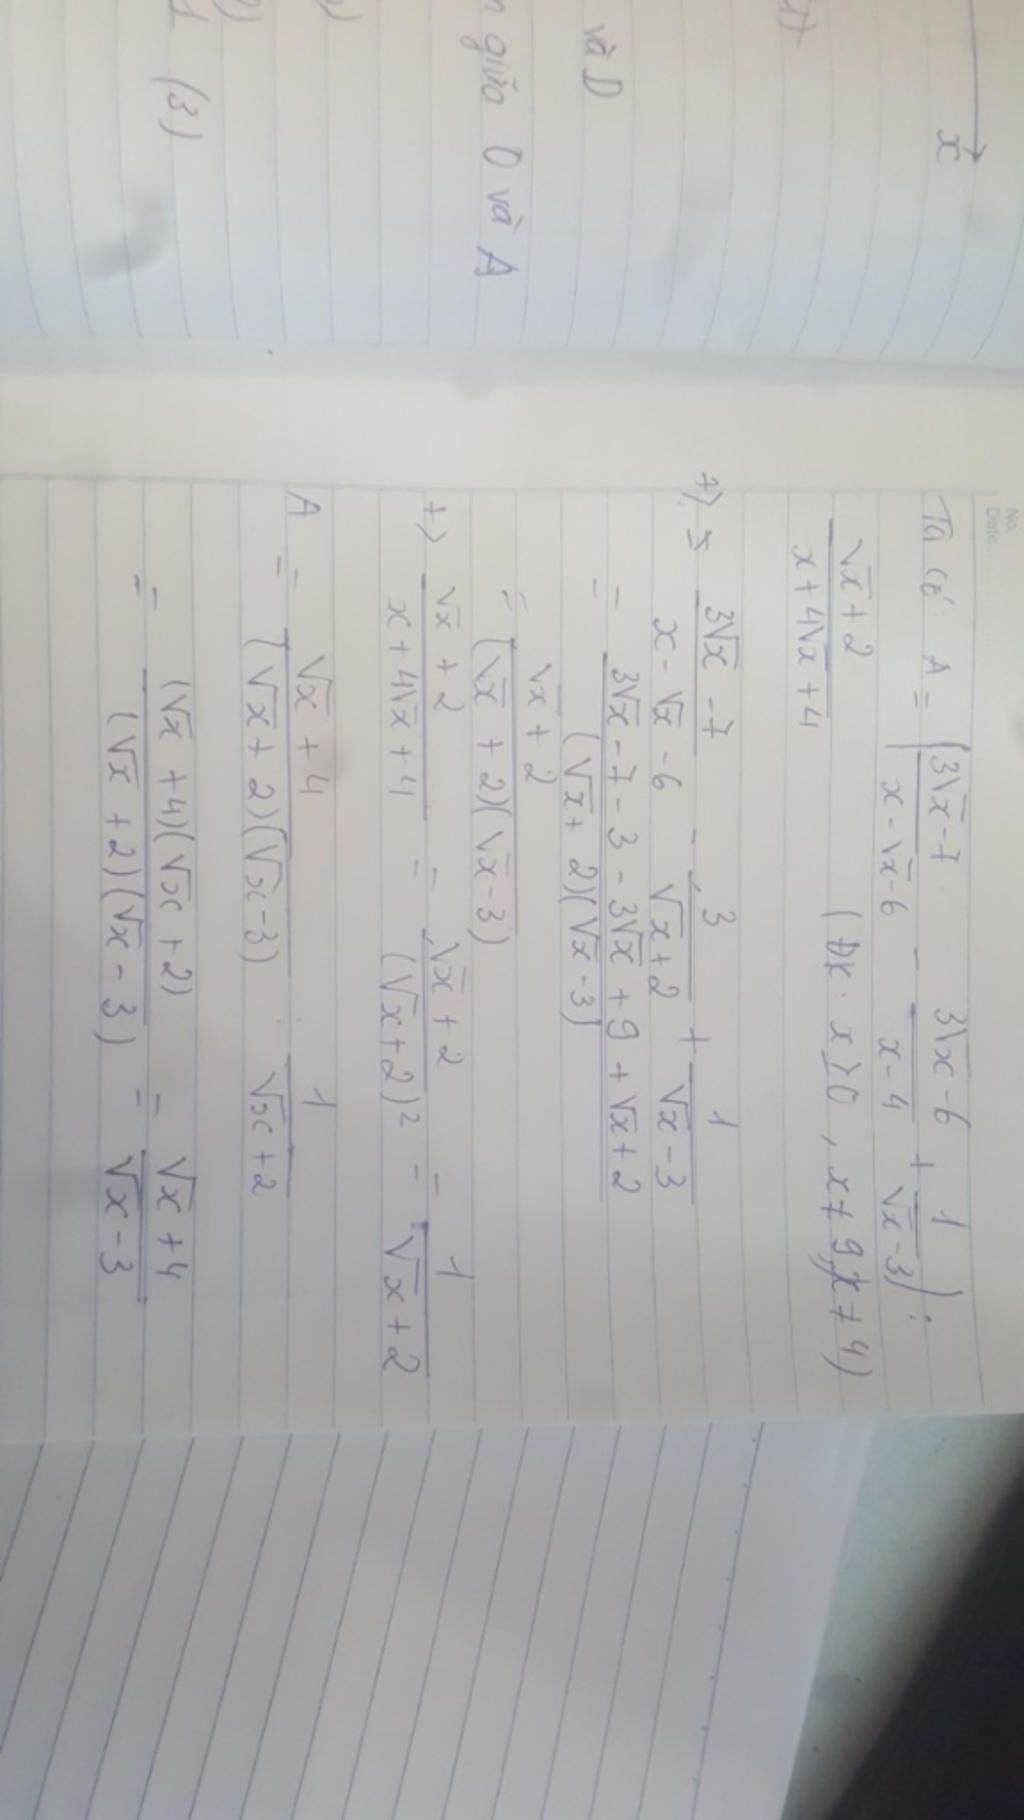 x
1)
và D
n giữa O và A
1 (3)
No.
Date
Ta có: A = (3√x - 7 / x - √x - 6 - 3√x - 6 / x - 4 + 1 / √x - 3) :
√x + 2 / x + 4√x + 4
(Đk: x ≥ 0, x ≠ 9, x ≠ 4)
+) 3√x - 7 / x - √x - 6 - 3 / √x + 2 + 1 / √x - 3
= 3√x - 7 - 3 - 3√x + 9 + √x + 2 / (√x + 2)(√x - 3)
= √x + 2 / (√x + 2)(√x - 3)
+) √x + 2 / x + 4√x + 4 = √x + 2 / (√x + 2)² = 1 / √x + 2
A = √x + 4 / (√x + 2)(√x - 3) 1 / √x + 2
= (√x + 4)(√x + 2) / (√x + 2)(√x - 3) = √x + 4 / √x - 3